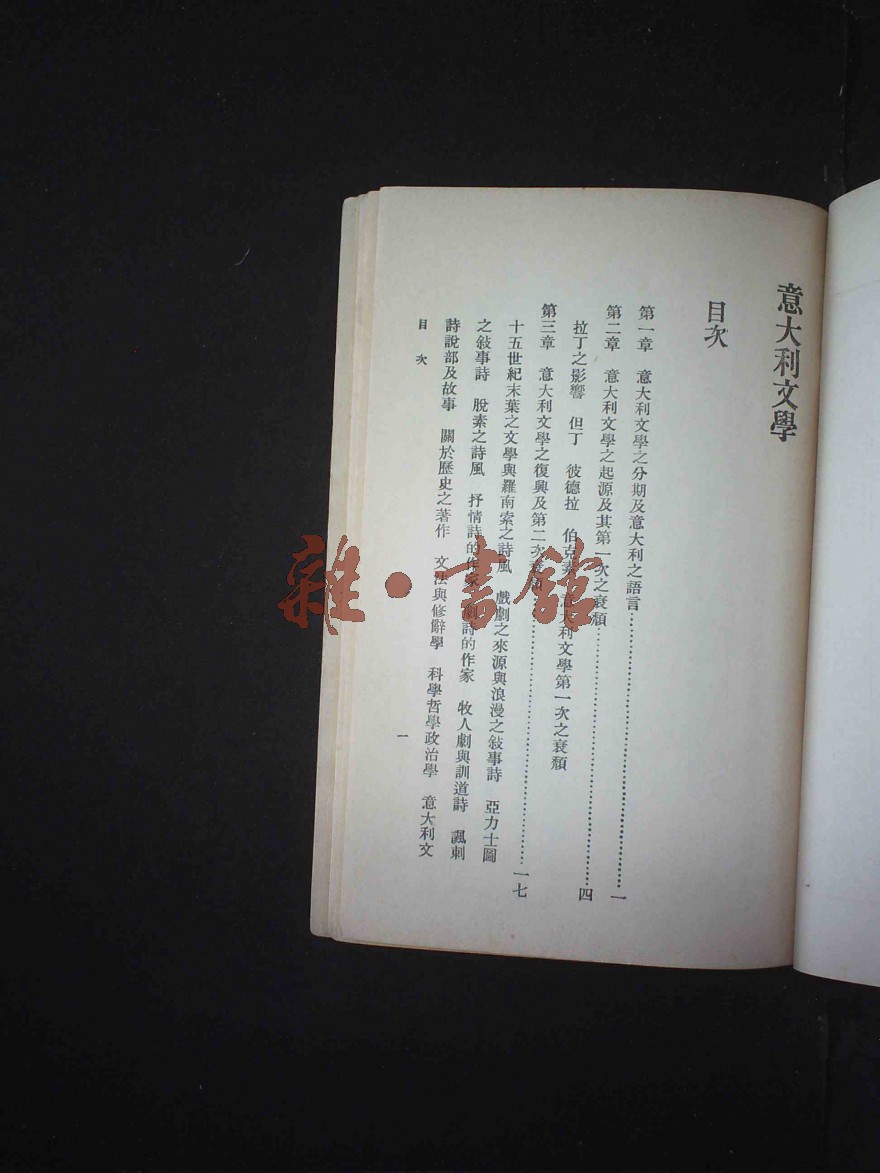 意大利文學
目次
第一章　意大利文學之分期及意大利之語言…………一
第二章　意大利文學之起源及其第一次之衰頹…………四
拉丁之影響　但丁　彼德拉　伯克素　意大利文學第一次之衰頹
第三章　意大利文學之復興及第二次衰頹…………一七
十五世紀末葉之文學與羅南索之詩風　戲劇之來源與浪漫之敍事詩　亞力士圖
之敍事詩　脫素之詩風　抒情詩的作家　劇詩的作家　牧人劇與訓道詩　諷刺
詩說部及故事　關於歷史之著作　文法與修辭學　科學哲學政治學　意大利文
目次　一
雜·書館